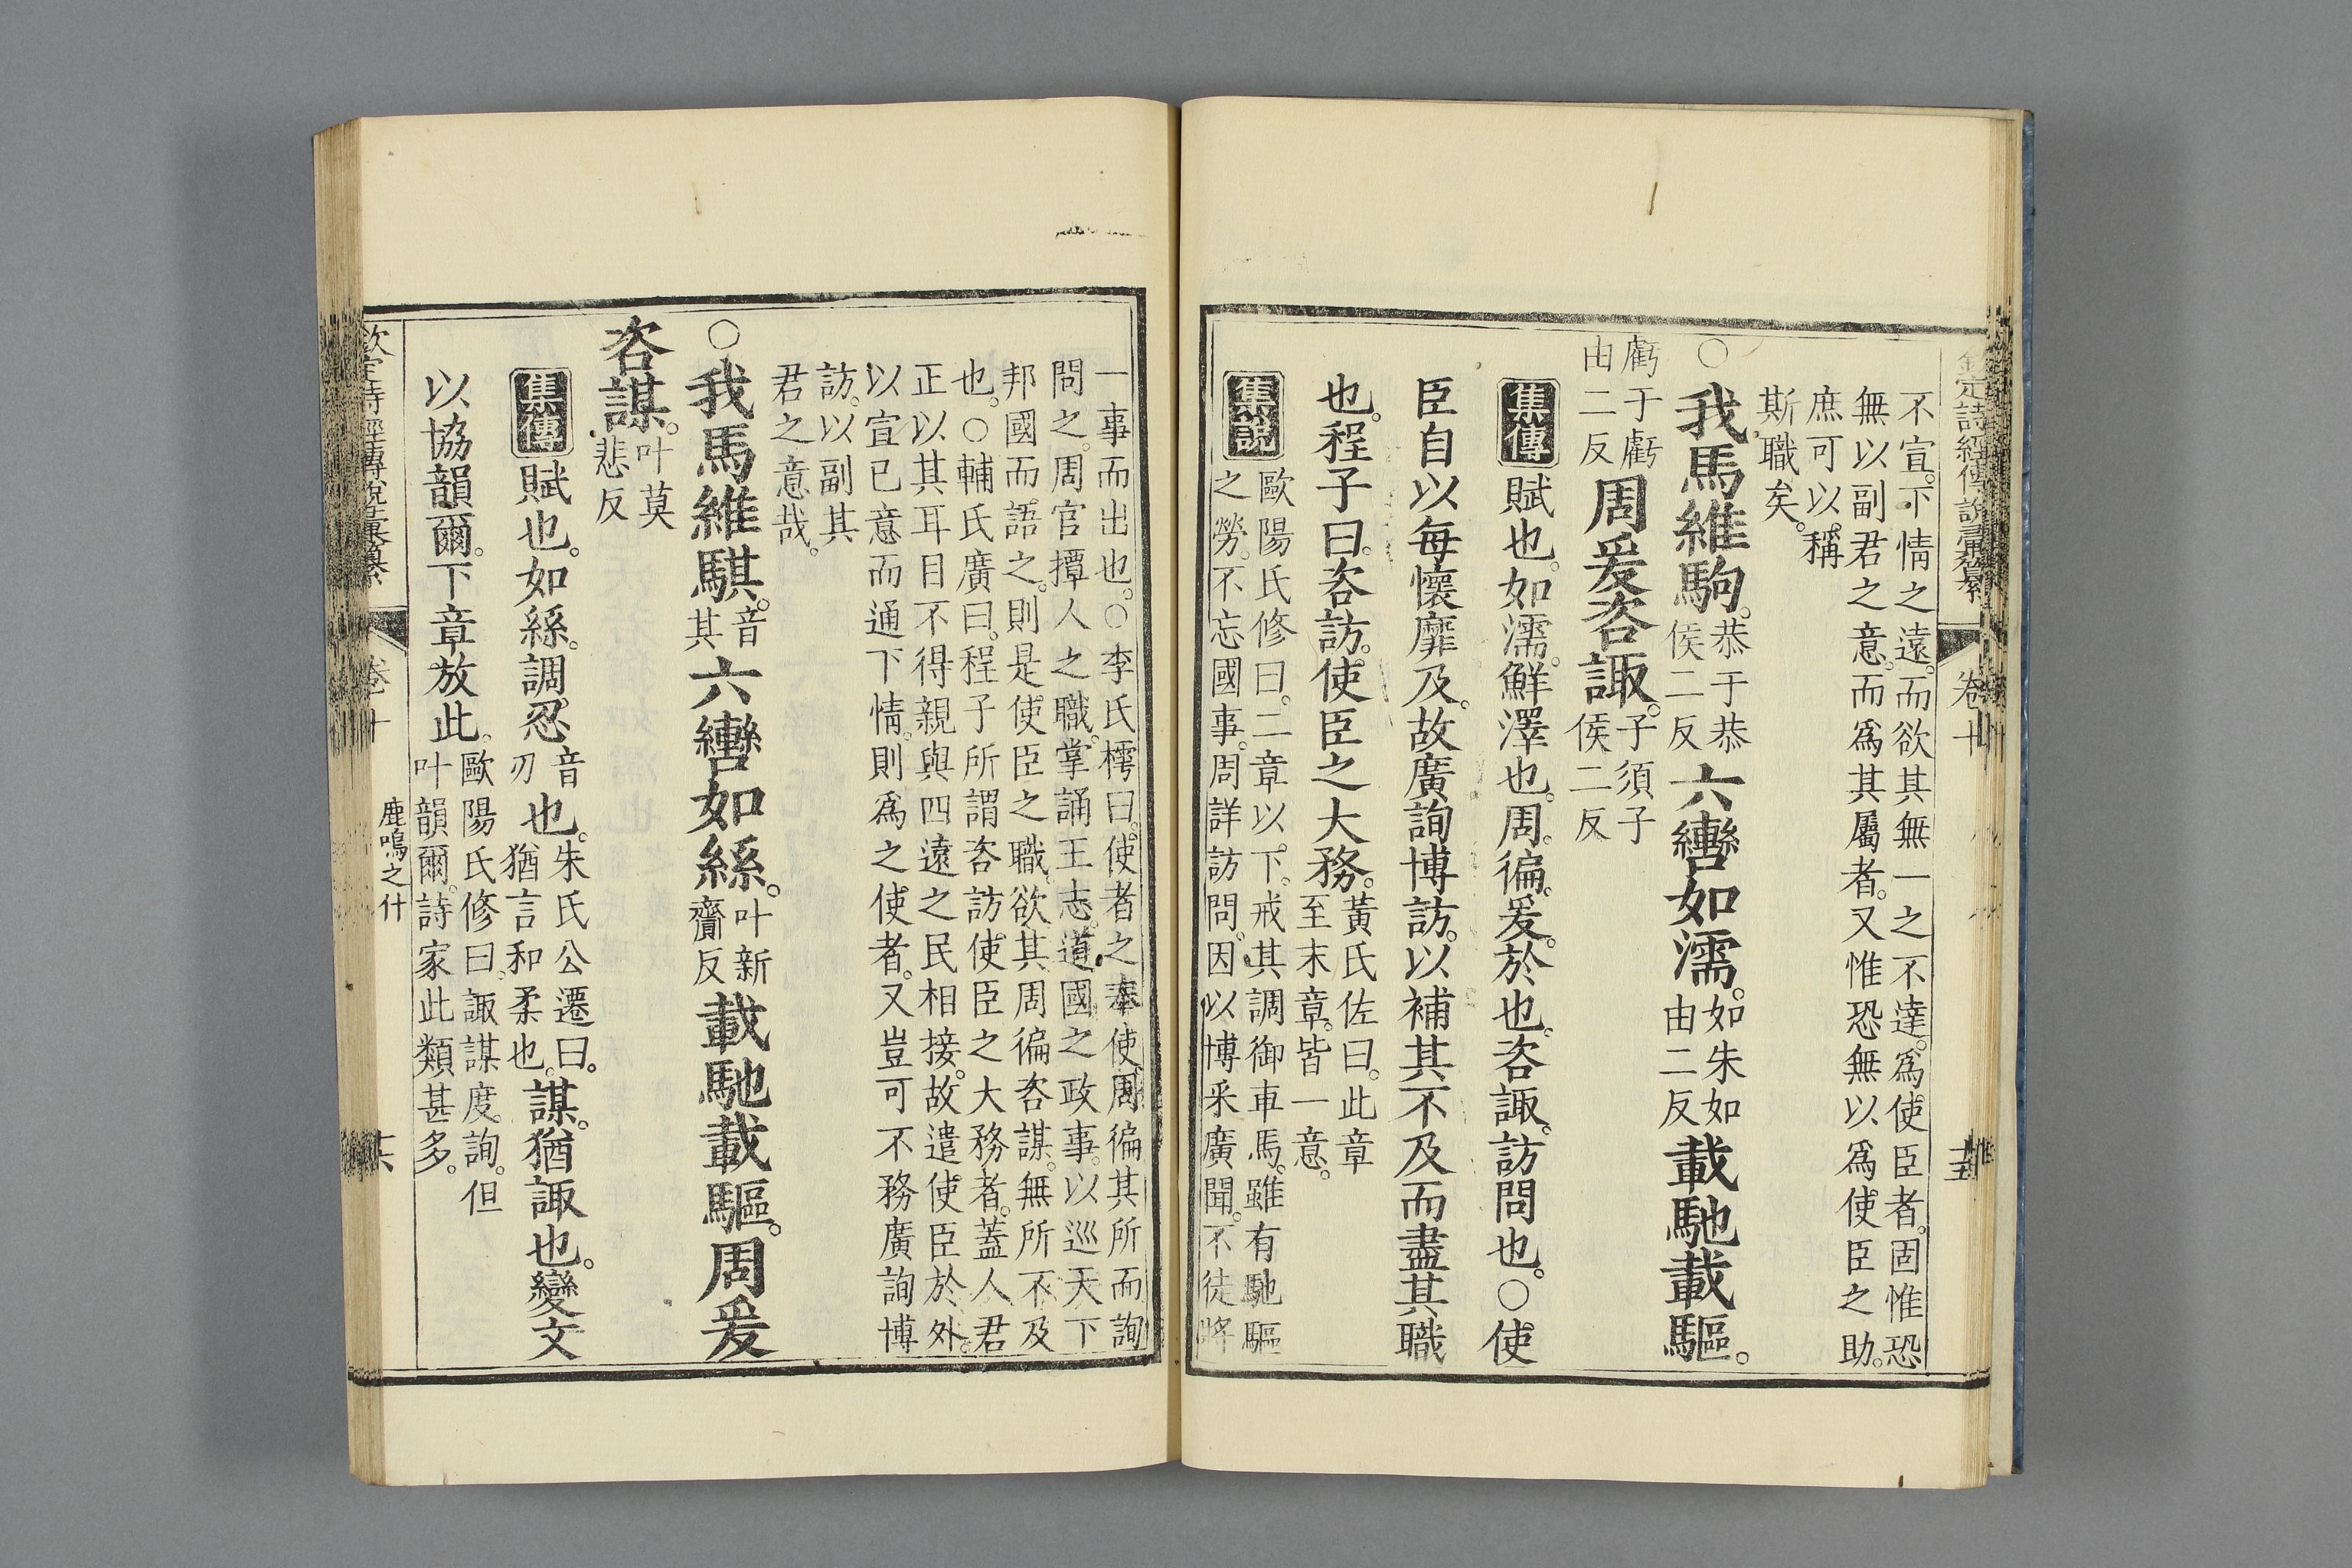 欽定詩經傳說彙纂 卷十 十五
不宣。下情之遠。而欲其無一之不達。爲使臣者。固惟恐
無以副君之意。而爲其屬者。又惟恐無以爲使臣之助。
庶可以稱
斯職矣。
○我馬維駒。恭于恭侯二反六轡如濡。如朱如由二反載馳載驅。
虧于虧由二反周爰咨諏。子須子侯二反
集傳 賦也。如濡。鮮澤也。周。徧。爰。於也。咨諏。訪問也。○使
臣自以每懷靡及。故廣詢博訪。以補其不及而盡其職
也。程子曰。咨訪。使臣之大務。黃氏佐曰。此章至末章。皆一意。
集說 歐陽氏修曰。二章以下。戒其調御車馬。雖有馳驅
之勞。不忘國事。周詳訪問。因以博采廣聞。不徒將
一事而出也。○李氏樗曰。使者之奉使。周徧其所而詢
問之。周官撢人之職。掌誦王志。道國之政事。以巡天下
邦國而語之。則是使臣之職。欲其周徧咨謀。無所不及
也。○輔氏廣曰。程子所謂咨訪。使臣之大務者。蓋人君
正以其耳目不得親與四遠之民相接。故遣使臣於外。
以宣已意而通下情。則爲之使者。又豈可不務廣詢博
訪。以副其
君之意哉。
○我馬維騏。音其六轡如絲。叶新齎反載馳載驅。周爰
咨謀。叶莫悲反
集傳 賦也。如絲。調忍音刃也。朱氏公遷曰。猶言和柔也。謀。猶諏也。變文
以協韻爾。下章放此。歐陽氏修曰。諏謀度詢。但叶韻爾。詩家此類甚多。
欽定詩經傳說彙纂 卷十 鹿鳴之什 十六